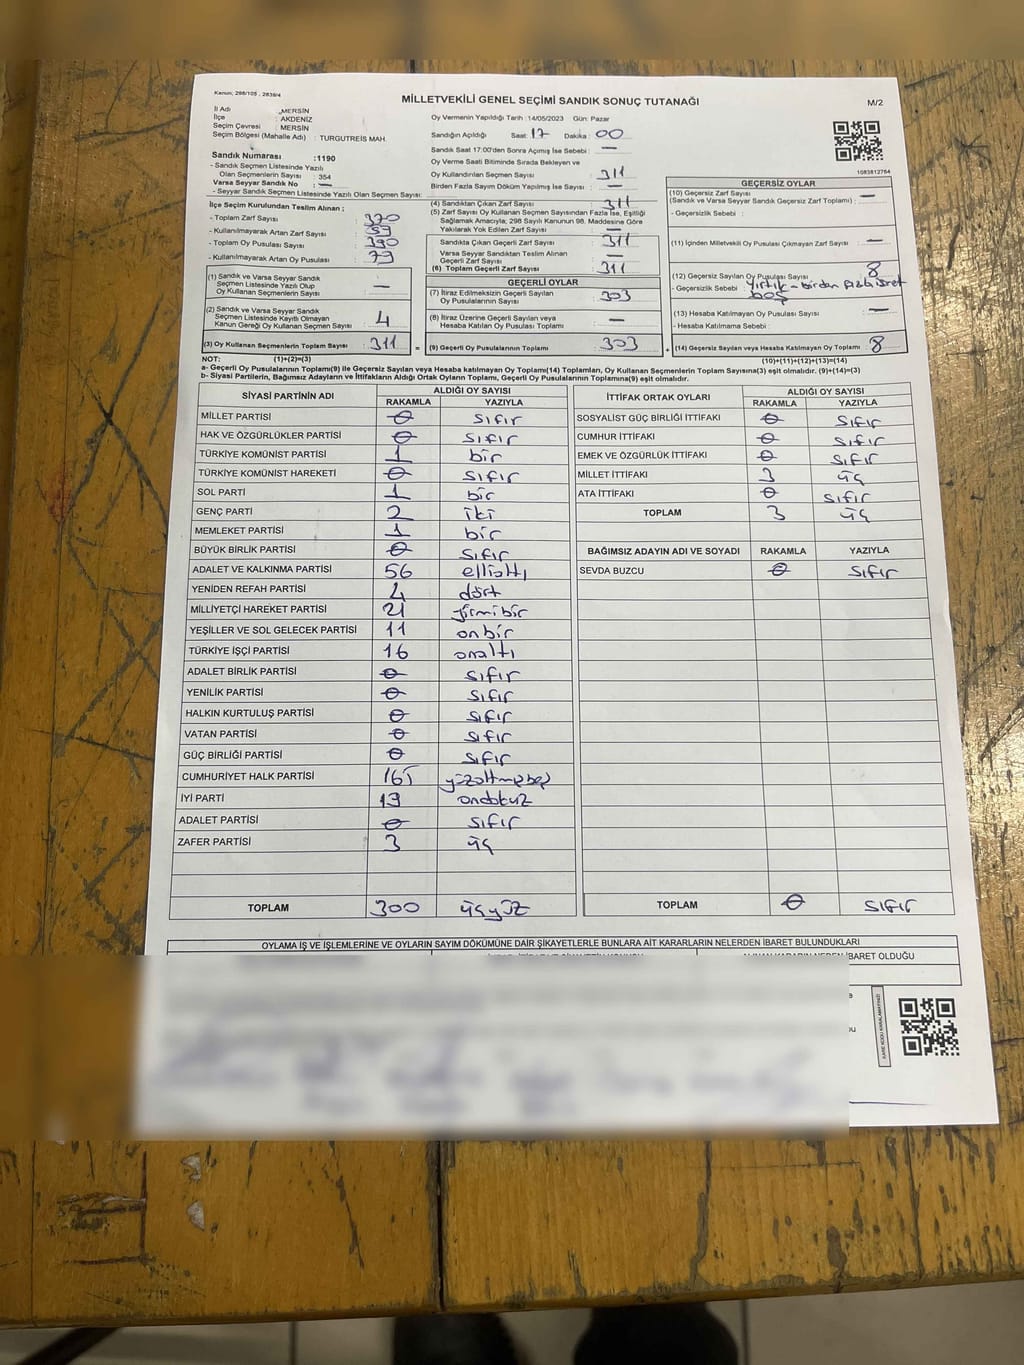 Kanun; 298/105 , 2839/4
MİLLETVEKİLİ GENEL SEÇİMİ SANDIK SONUÇ TUTANAĞI
M/2
İl Adı : MERSİN
İlçe : AKDENİZ
Seçim Çevresi : MERSİN
Seçim Bölgesi (Mahalle Adı) : TURGUTREİS MAH.
Sandık Numarası :1190
- Sandık Seçmen Listesinde Yazılı
Olan Seçmenlerin Sayısı : 354
Varsa Seyyar Sandık No : —
- Seyyar Sandık Seçmen Listesinde Yazılı Olan Seçmen Sayısı:
Oy Vermenin Yapıldığı Tarih :14/05/2023 Gün: Pazar
Sandığın Açıldığı Saat: 17 Dakika: 00
Sandık Saat 17:00'den Sonra Açılmış İse Sebebi : —
Oy Verme Saati Bitiminde Sırada Bekleyen ve
Oy Kullandırılan Seçmen Sayısı : 311
Birden Fazla Sayım Döküm Yapılmış İse Sayısı : —
1083812764
İlçe Seçim Kurulundan Teslim Alınan ;
- Toplam Zarf Sayısı : 370
- Kullanılmayarak Artan Zarf Sayısı : 59
- Toplam Oy Pusulası Sayısı : 390
- Kullanılmayarak Artan Oy Pusulası : 79
(1) Sandık ve Varsa Seyyar Sandık
Seçmen Listesinde Yazılı Olup
Oy Kullanan Seçmenlerin Sayısı : —
(2) Sandık ve Varsa Seyyar Sandık
Seçmen Listesinde Kayıtlı Olmayan
Kanun Gereği Oy Kullanan Seçmen Sayısı : 4
(3) Oy Kullanan Seçmenlerin Toplam Sayısı : 311
(4) Sandıktan Çıkan Zarf Sayısı : 311
(5) Zarf Sayısı Oy Kullanan Seçmen Sayısından Fazla İse, Eşitliği
Sağlamak Amacıyla; 298 Sayılı Kanunun 98. Maddesine Göre
Yakılarak Yok Edilen Zarf Sayısı : —
Sandıkta Çıkan Geçerli Zarf Sayısı : 311
Varsa Seyyar Sandıktan Teslim Alınan
Geçerli Zarf Sayısı : —
(6) Toplam Geçerli Zarf Sayısı : 311
GEÇERLİ OYLAR
(7) İtiraz Edilmeksizin Geçerli Sayılan
Oy Pusulalarının Sayısı : 303
(8) İtiraz Üzerine Geçerli Sayılan veya
Hesaba Katılan Oy Pusulası Toplamı : —
= (9) Geçerli Oy Pusulalarının Toplamı : 303
GEÇERSİZ OYLAR
(10) Geçersiz Zarf Sayısı : —
(Sandık ve Varsa Seyyar Sandık Geçersiz Zarf Toplamı)
- Geçersizlik Sebebi :
(11) İçinden Milletvekili Oy Pusulası Çıkmayan Zarf Sayısı : —
(12) Geçersiz Sayılan Oy Pusulası Sayısı : 8
- Geçersizlik Sebebi : Yırtık - birden fazla
boş
(13) Hesaba Katılmayan Oy Pusulası Sayısı : —
- Hesaba Katılmama Sebebi :
+ (14) Geçersiz Sayılan veya Hesaba Katılmayan Oy Toplamı : 8
NOT: (1)+(2)=(3) (10)+(11)+(12)+(13)=(14)
a- Geçerli Oy Pusulalarının Toplamı(9) ile Geçersiz Sayılan veya Hesaba katılmayan Oy Toplamı(14) Toplamları, Oy Kullanan Seçmenlerin Toplam Sayısına(3) eşit olmalıdır. (9)+(14)=(3)
b- Siyasi Partilerin, Bağımsız Adayların ve İttifakların Aldığı Ortak Oyların Toplamı, Geçerli Oy Pusulalarının Toplamına(9) eşit olmalıdır.
SİYASİ PARTİNİN ADI ALDIĞI OY SAYISI
RAKAMLA YAZIYLA
MİLLET PARTİSI 0 sıfır
HAK VE ÖZGÜRLÜKLER PARTİSİ 0 sıfır
TÜRKİYE KOMÜNİST PARTİSİ 1 bir
TÜRKİYE KOMÜNİST HAREKETİ 0 sıfır
SOL PARTİ 1 bir
GENÇ PARTİ 2 iki
MEMLEKET PARTİSİ 1 bir
BÜYÜK BİRLİK PARTİSİ 0 sıfır
ADALET VE KALKINMA PARTİSİ 56 ellialtı
YENİDEN REFAH PARTİSİ 4 dört
MİLLİYETÇİ HAREKET PARTİSİ 21 yirmibir
YEŞİLLER VE SOL GELECEK PARTİSİ 11 onbir
TÜRKİYE İŞÇİ PARTİSİ 16 onaltı
ADALET BİRLİK PARTİSİ 0 sıfır
YENİLİK PARTİSİ 0 sıfır
HALKIN KURTULUŞ PARTİSİ 0 sıfır
VATAN PARTİSİ 0 sıfır
GÜÇ BİRLİĞİ PARTİSİ 0 sıfır
CUMHURİYET HALK PARTİSİ 165 yüzaltmışbeş
İYİ PARTİ 19 ondokuz
ADALET PARTİSİ 0 sıfır
ZAFER PARTİSİ 3 üç
TOPLAM 300 üçyüz
İTTİFAK ORTAK OYLARI ALDIĞI OY SAYISI
RAKAMLA YAZIYLA
SOSYALİST GÜÇ BİRLİĞİ İTTİFAKI 0 sıfır
CUMHUR İTTİFAKI 0 sıfır
EMEK VE ÖZGÜRLÜK İTTİFAKI 0 sıfır
MİLLET İTTİFAKI 3 üç
ATA İTTİFAKI 0 sıfır
TOPLAM 3 üç
BAĞIMSIZ ADAYIN ADI VE SOYADI RAKAMLA YAZIYLA
SEVDA BUZCU 0 sıfır
TOPLAM 0 sıfır
OYLAMA İŞ VE İŞLEMLERİNE VE OYLARIN SAYIM DÖKÜMÜNE DAİR ŞİKAYETLERLE BUNLARA AİT KARARLARIN NELERDEN İBARET BULUNDUKLARI
İBARET OLDUĞU